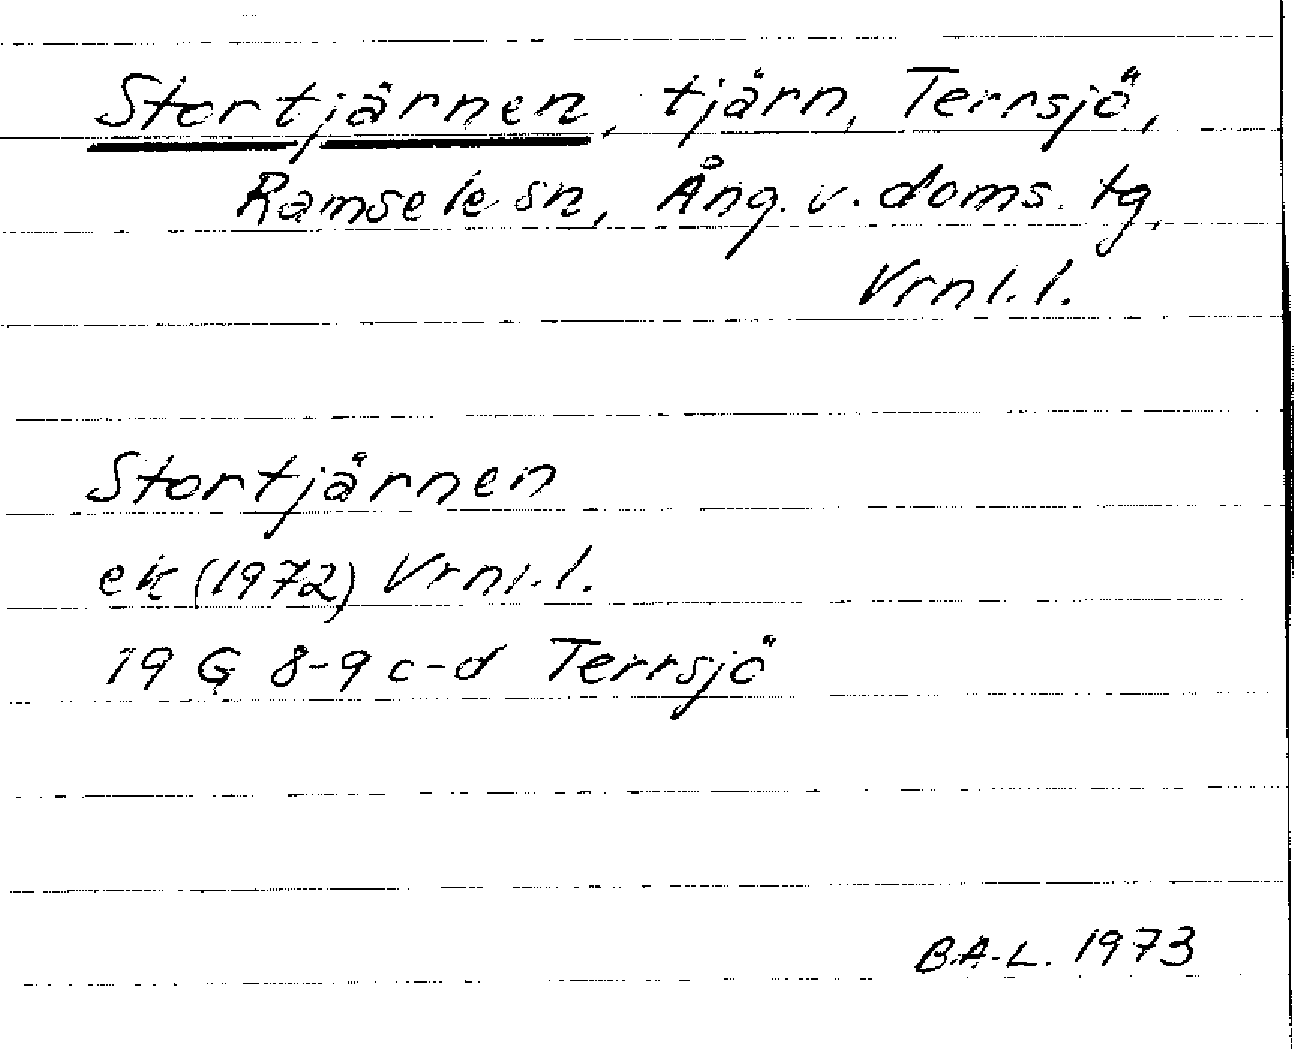 Stortjärnen, tjärn, Terrsjö,
Ramsele sn, Ång. v. doms. tg,
Vrnl. l.
Stortjärnen
ek (1972) Vrnl. l.
19 G 8-9 c-d Terrsjö
B.A-L. 1973